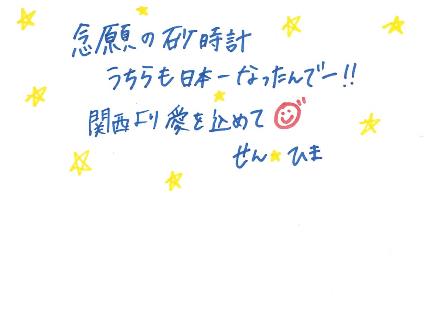 念願の砂時計
うちらも日本一なったんでー!!
関西より愛を込めて
せん★ひま